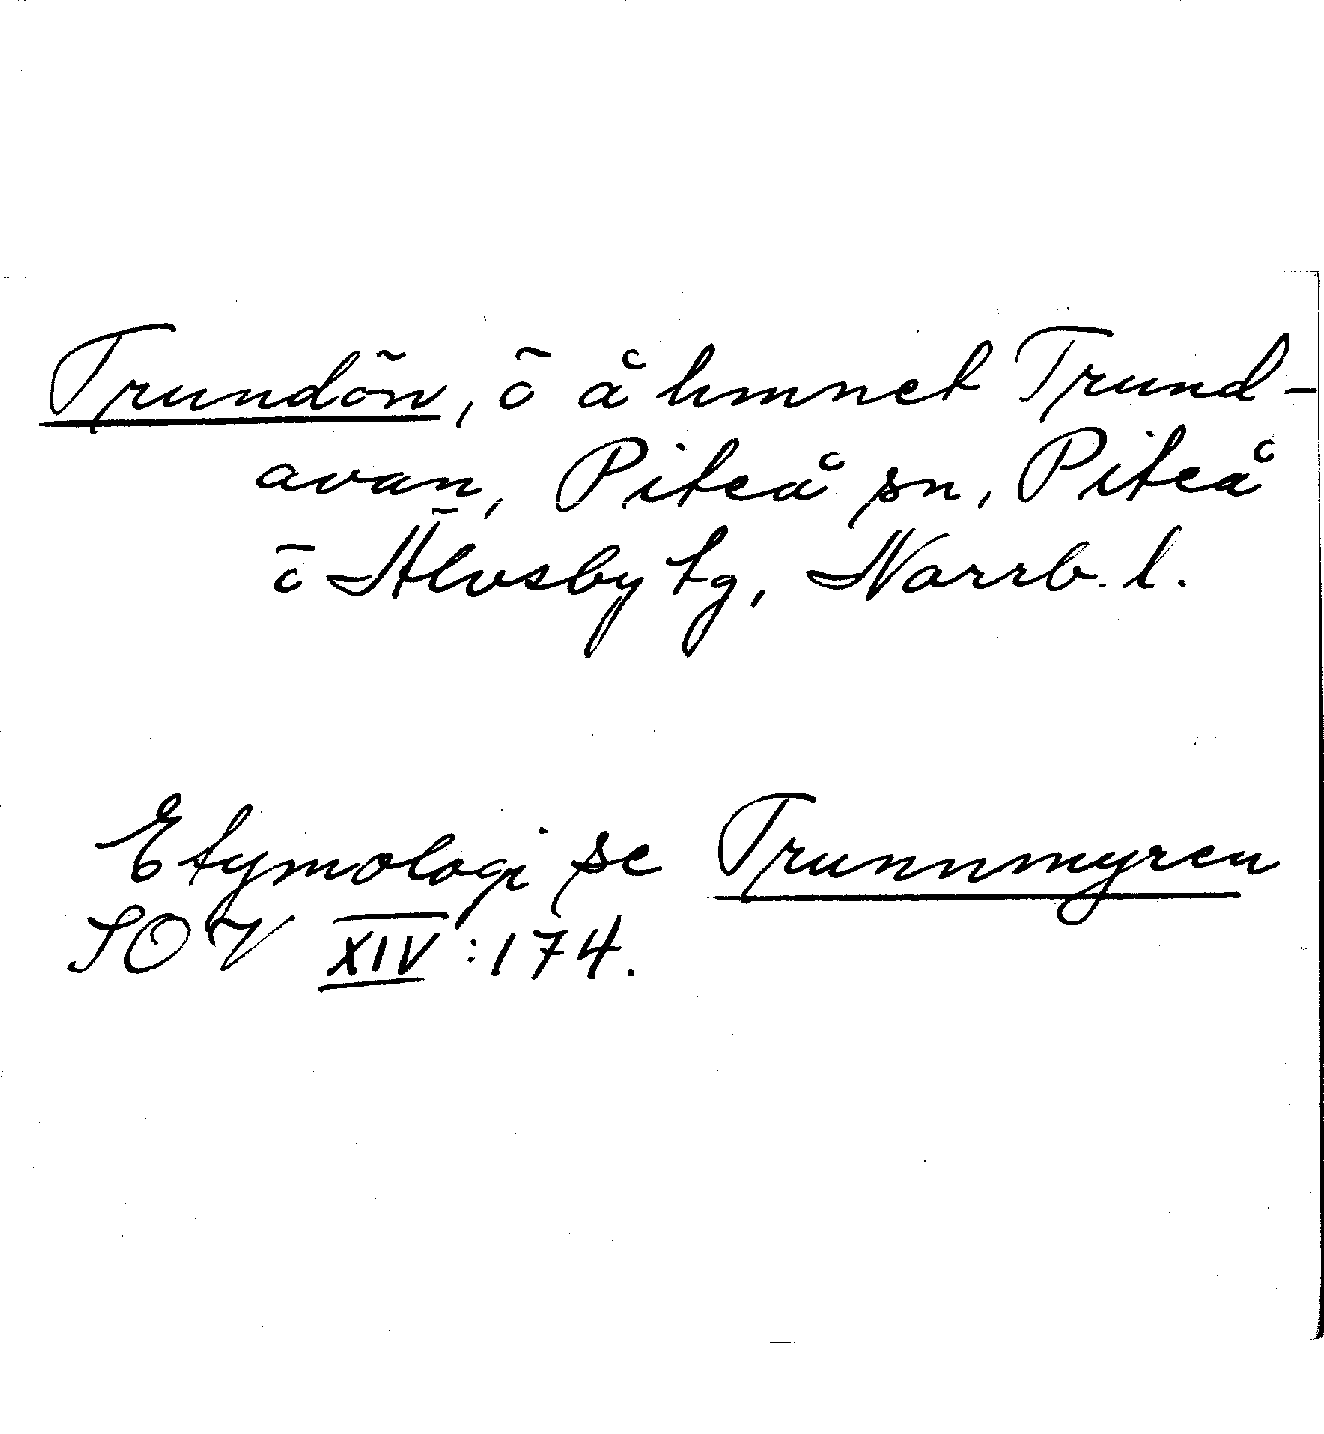 Trundön, ö å hmnet Trund-
avan, Piteå sn, Piteå
o Älvsby tg, Norrb. l.
Etymologi se Trunnmyren
SOV XIV:174.